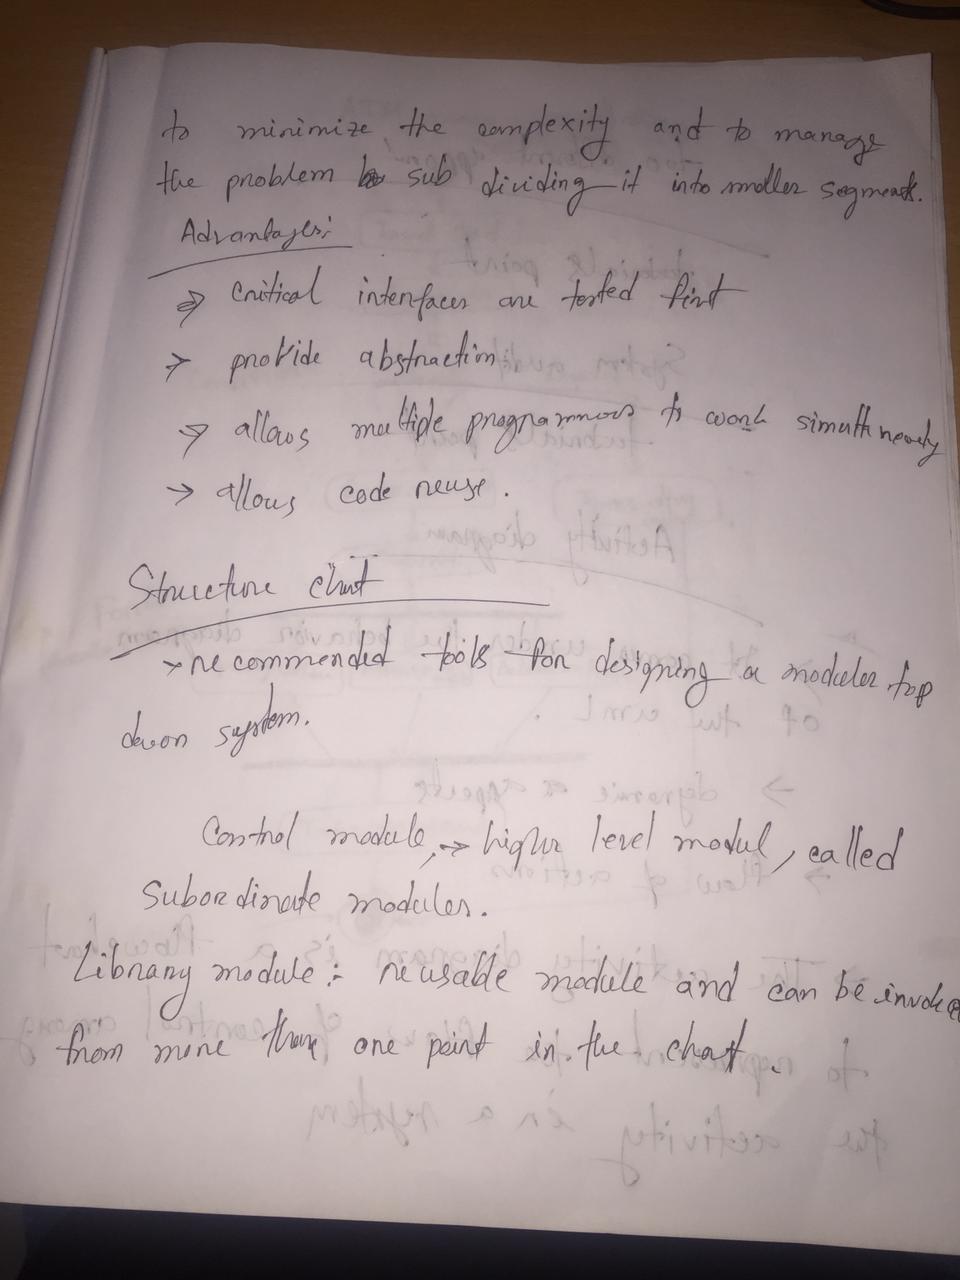 to minimize the complexity and to manage
the problem sub dividing it into smaller segments.
Advantages:
→ critical interfaces are tested first
→ provide abstraction
→ allows multiple programmers to work simultaneously
→ allows code reuse.
Structure chart
→ recommended tools for designing a moduler top
down system.
Control module, → higher level modul, called
Subordinate modules.
Library module :- reusable module and can be invoke
from more than one point in the chart.